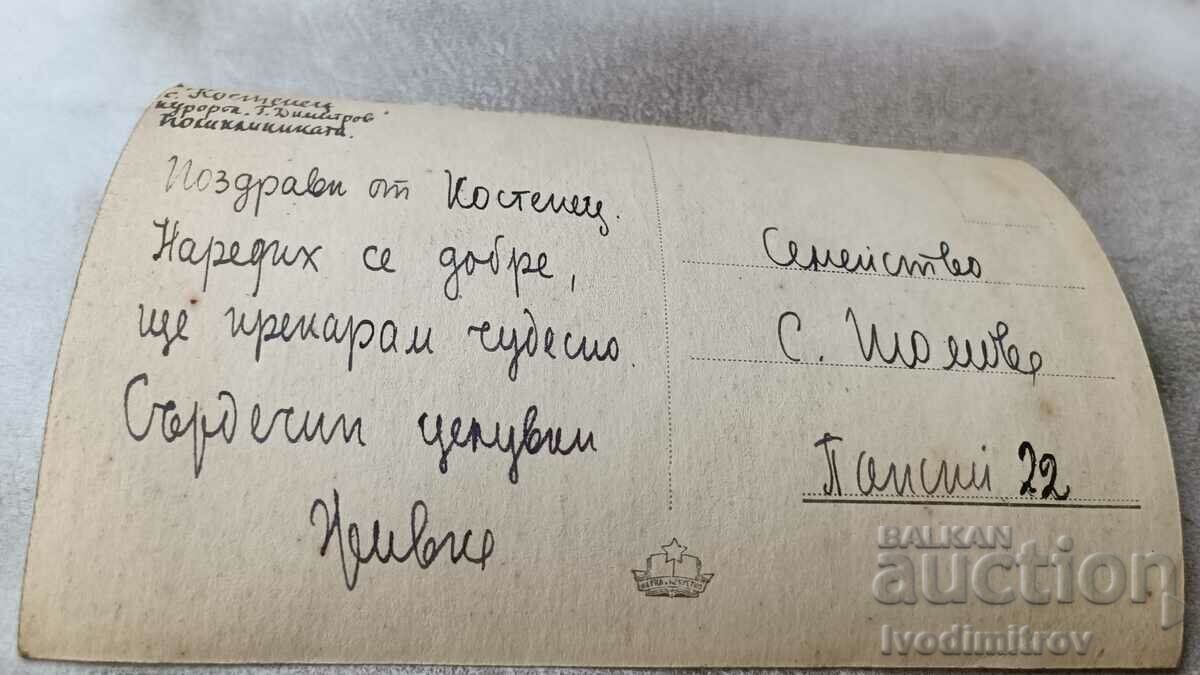 с. Костенец
курорта "Г. Димитров"
Поликлиниката.
Поздрави от Костенец.
Наредих се добре,
ще прекарам чудесно.
Сърдечни целувки
Семейство
С.
22
BALKAN
auction
Ivodimitrov